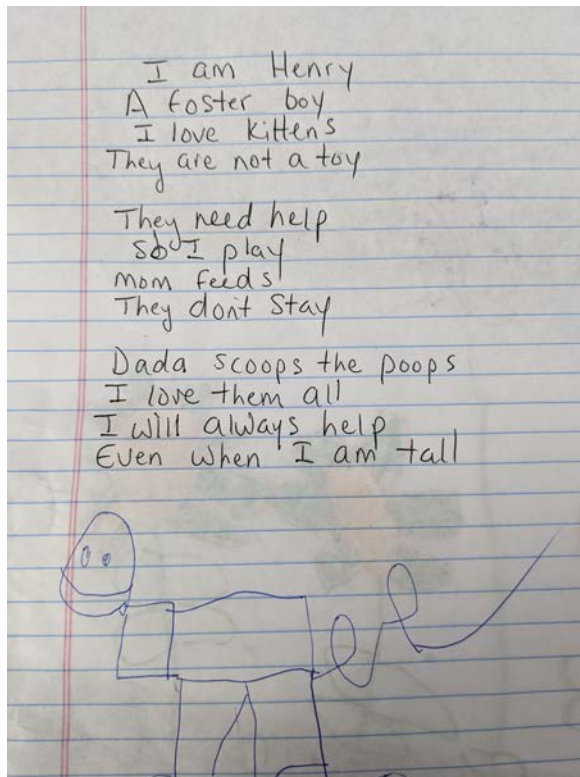 I am Henry
A foster boy
I love kittens
They are not a toy
They need help
So I play
mom feeds
They don't stay
Dada scoops the poops
I love them all
I will always help
Even when I am tall